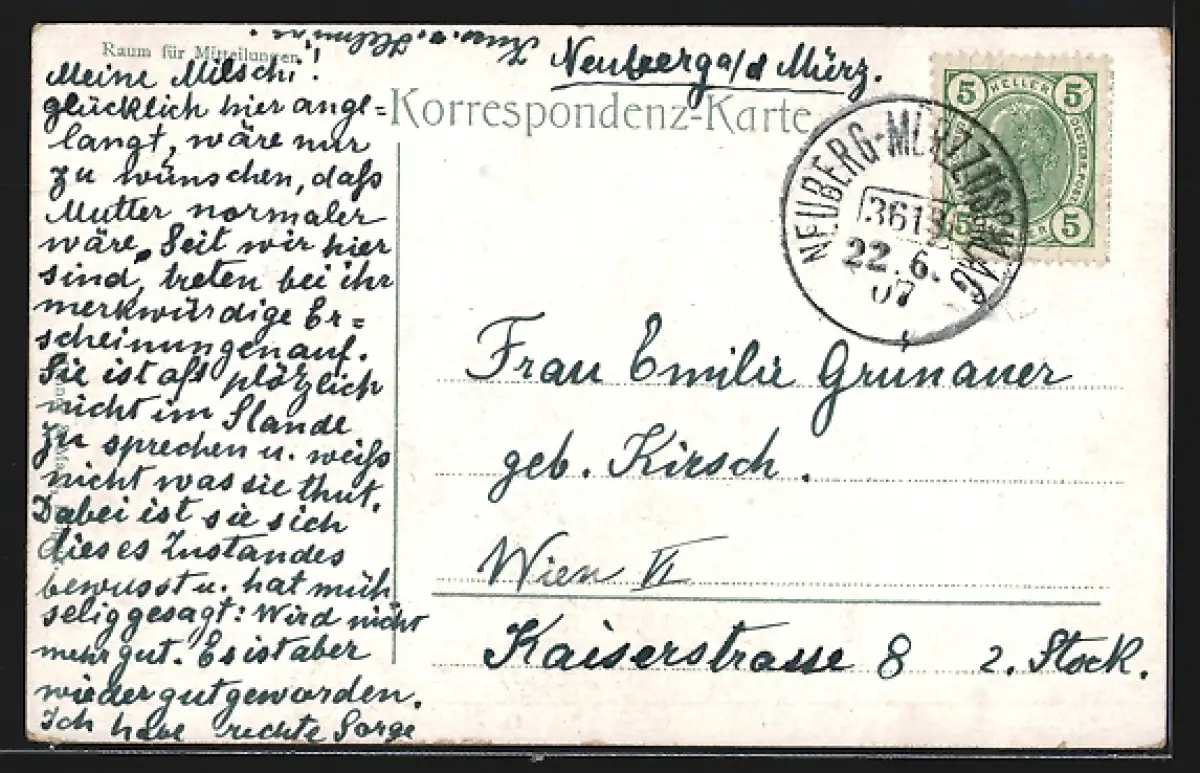 Raum für Mitteilungen
Meine Milschi!
glücklich hier ange=
langt, wäre nur
zu wünschen, daß
Mutter normaler
wäre. Seit wir hier
sind, treten bei ihr
merkwürdige Er=
scheinungen auf.
Sie ist oft plötzlich
nicht im Stande
zu sprechen u. weiß
nicht was sie thut.
Dabei ist sie sich
dieses Zustandes
bewusst u. hat müh
selig gesagt: Wird nicht
mehr gut. Es ist aber
wieder gut geworden.
Ich habe rechte Sorge
Neuberg a/d Mürz.
Korrespondenz-Karte
5 HELLER 5
OESTERR. POST
5 5
NEUBERG-MÜRZZUSCHLAG
3613
22.6.
07
Frau Emilie Grunauer
geb. Kirsch.
Wien VI
Kaiserstrasse 8 2. Stock.